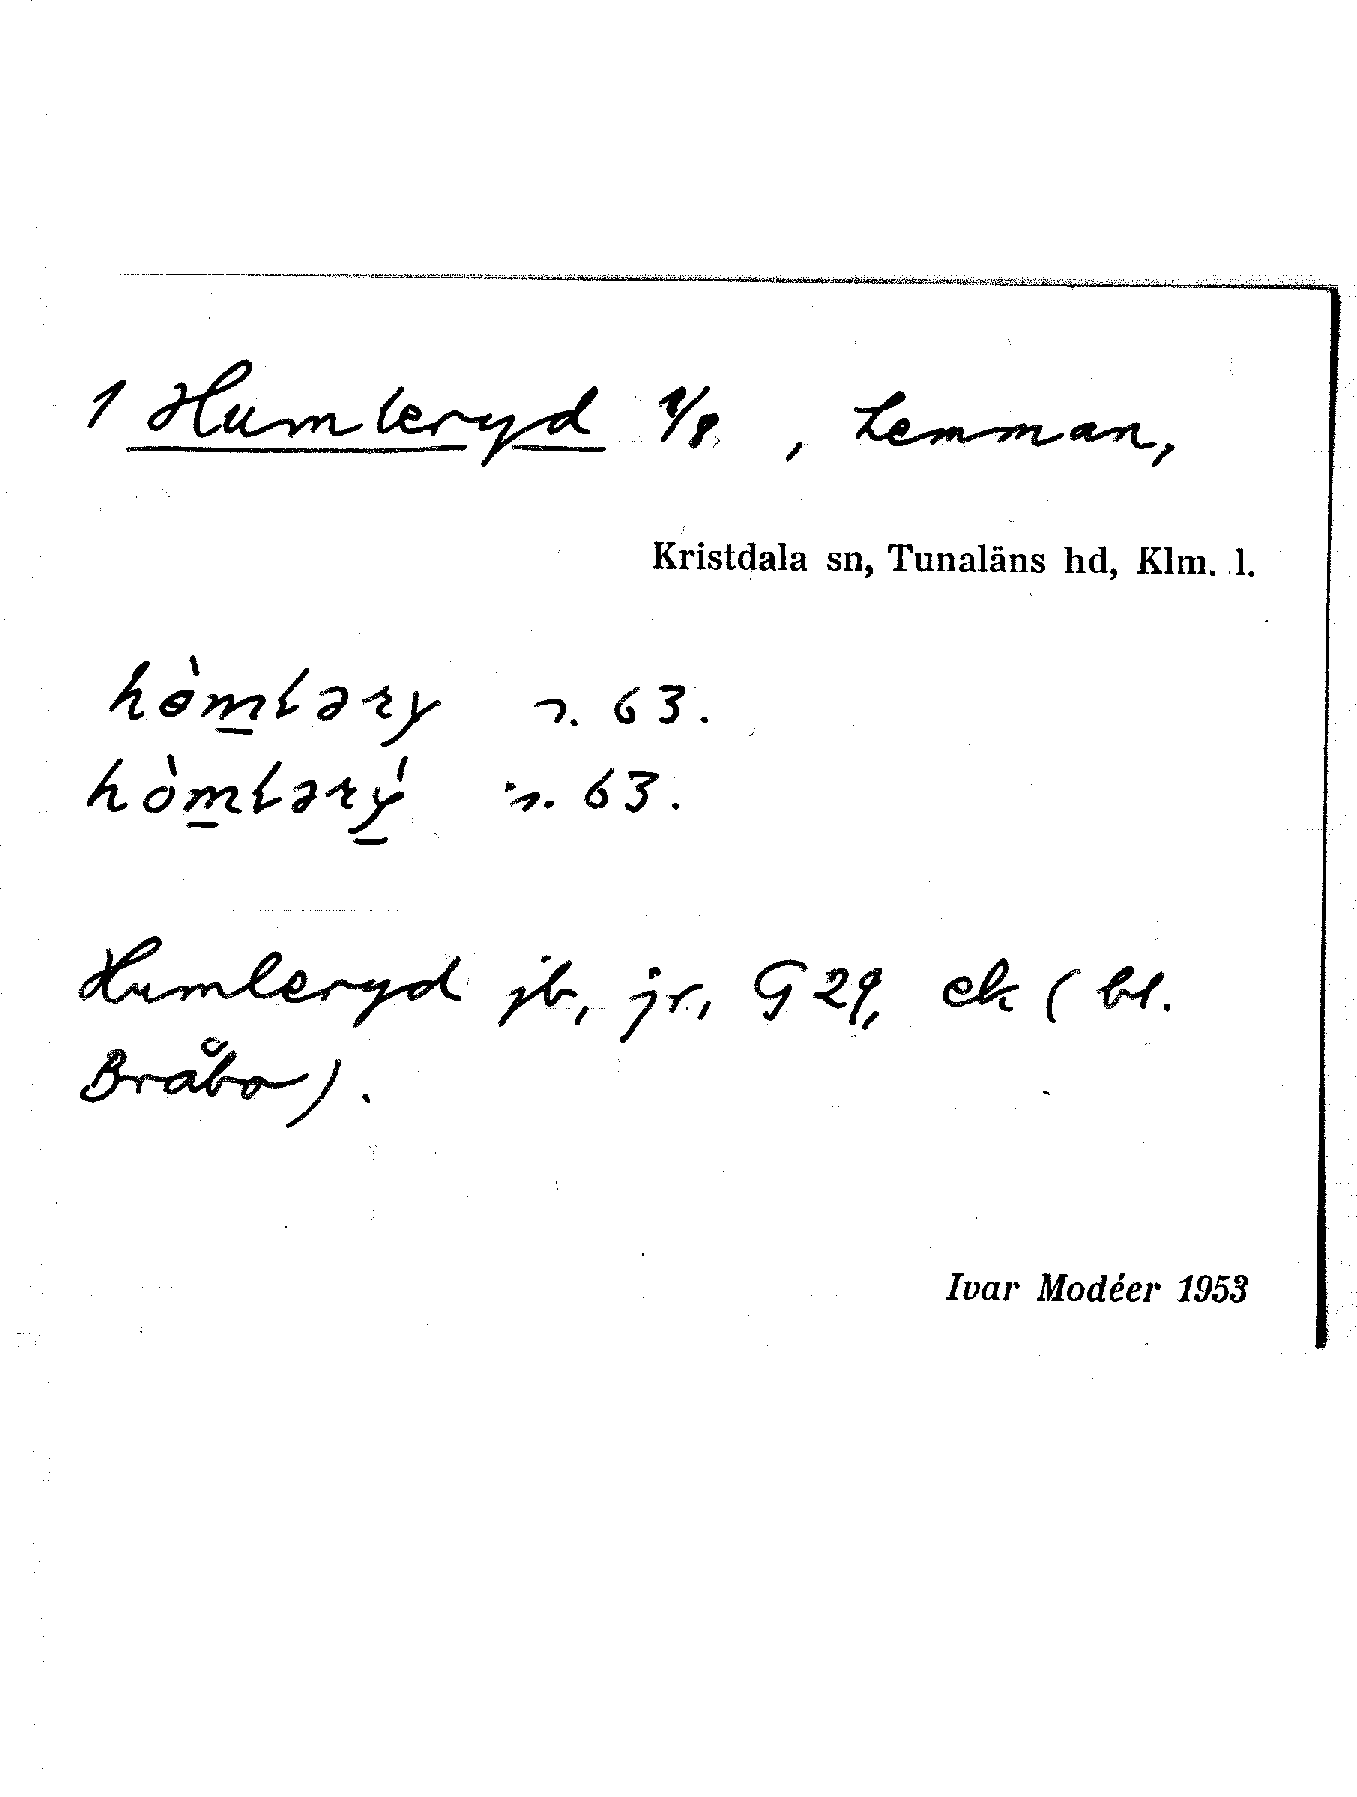 1 Humleryd 1/8, Lemman,
Kristdala sn, Tunaläns hd, Klm. l.
hò̵m̲ləry n. 63.
hòm̲lərý̲ n. 63.
Humleryd jb, jr, G 29, ek (bl.
Bråbo).
Ivar Modéer 1953